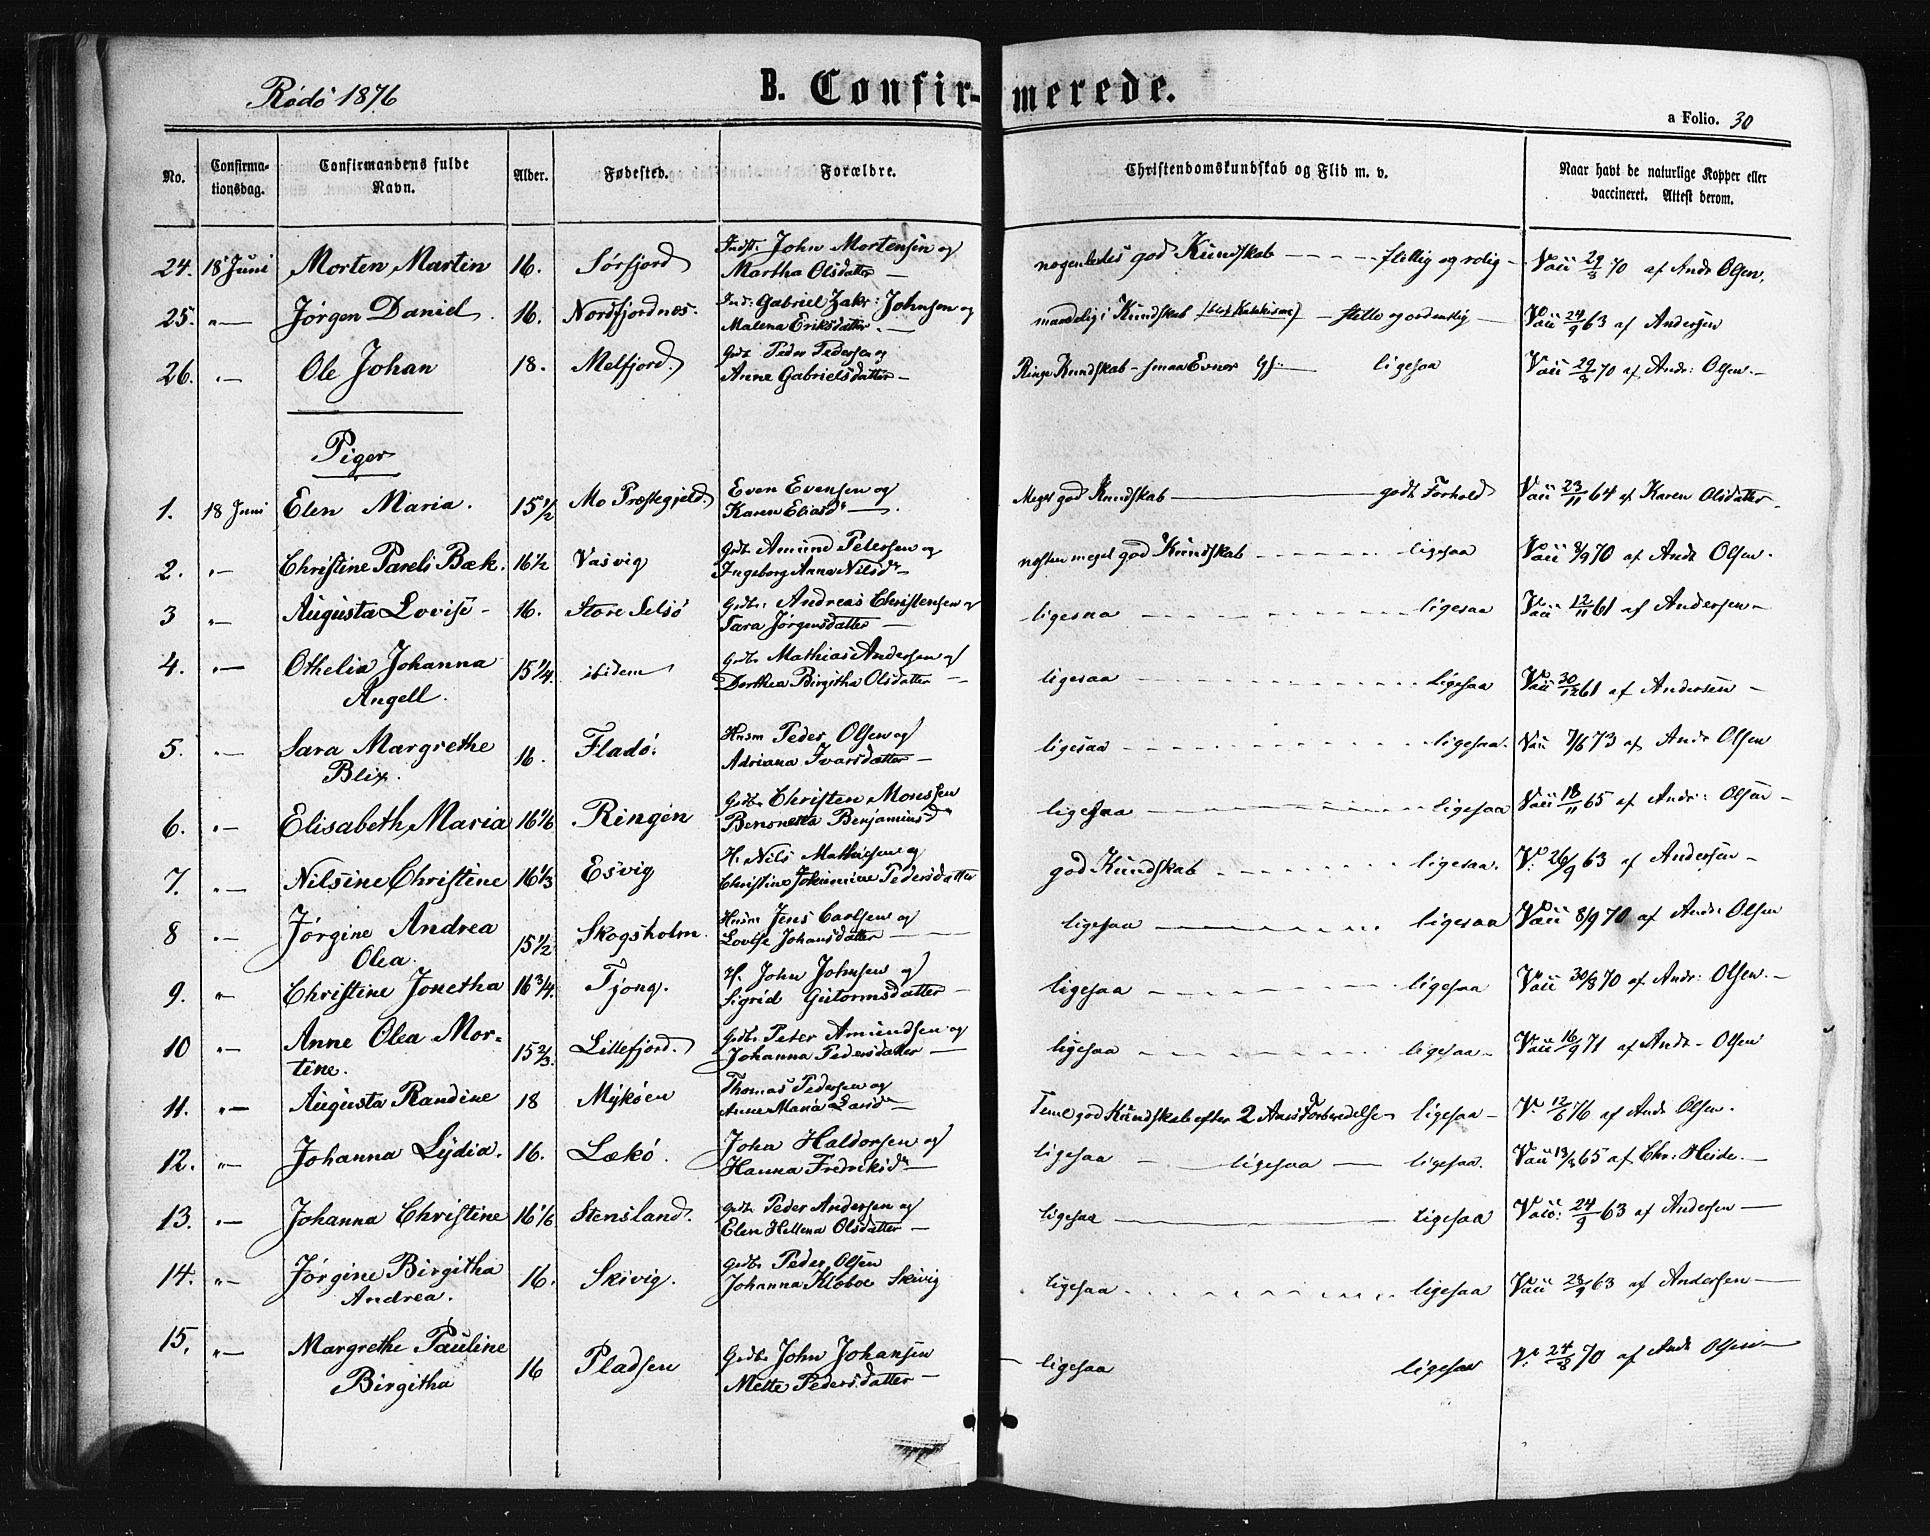 Rödö 1876
B. Confirmerede.
a Folio. 30
No.
Confirma-
tionsdag.
Confirmandens fulde
Navn.
Alder.
Fødested.
Forældre.
Christendomskundskab og Flid m. v.
Naar havt de naturlige Kopper eller
vaccineret. Attest derom.
24. 18 Juni Morten Martin 16. Sörfjord Indst: John Mortensen og Martha Olsdatter — nogenledes god Kundskab - - - - flittig og rolig - Vacc 29/8 70 af Andr Olsen.
25. „ — Jörgen Daniel. 16. Nordfjordnes. Ind: Gabriel Zakr: Johnsen og Malena Eriksdatter. — maadelig Kundskab — flitte og ordentlig — Vacc 24/9 63 af Andersen
26. „ — Ole Johan 18. Melfjord. Gdb Peder Pedersen og Anne Gabrielsdatter — Ringe Kundskab - smaa Evner — ligesaa Vacc 29/8 70 af Andr: Olsen. -
Piger
1. 18 Juni Elen Maria. 15 1/2 Mo Præstegjeld. Even Evensen og Karen Eliasdr — Meget god Kundskab — godt Forhold Vacc 23/11 64 af Karen Olsdatter.
2. „ — Christine Pareli Bæk. 16 1/2 Vasvig Gdbr Amund Petersen og Ingeborg Anna Nilsdr — nesten meget god Kundskab - - - - ligesaa Vacc 8/9 70 af Andr Olsen.
3 „ — Augusta Lovise - 16. Store Selsö Gdbr: Andreas Christensen og Sara Jörgensdatter — ligesaa - - - - ligesaa Vacc 12/11 61 af Andersen —
4. „ — Othelia Johanna 15 1/4. ibidem Gdbr Mathias Andersen og Dorthea Birgitha Olsdatter — ligesaa - - - - ligesaa Vacc 30/12 61 af Andersen —
Angell.
5. „ — Sara Margrethe 16. Fladö. Husm Peder Olsen og Adriana Ivarsdatter — ligesaa - - - - ligesaa. Vacc 7/6 73 af Andr Olsen
Blix.
6. „ — Elisabeth Maria 16 1/6 Ringen Gdbr Christen Monssen Benonette Benjaminsdr ligesaa - - - - ligesaa Vacc 18/11 65 af Andr: Olsen —
7. „ — Nilsine Christine 16 1/3 Esvig H. Nils Mathiesen og Christine Johannine Pedersdatter god Kundskab - - - - ligesaa. V. 26/9 63 af Andersen —
8 „ — Jörgine Andrea 15 1/2 Skogsholm. Husm Jens Carlsen og Lovise Johansdatter — ligesaa - - - - ligesaa Vacc 8/9 70 af Andr Olsen
Olea.
9. „ Christine Jonetha 16 3/4. Tjong. H. John Johnsen og Sigrid Guttormsdatter — ligesaa - - - - ligesaa Vacc 30/8 70 af Andr: Olsen. -
10 „ — Anne Olea Mor- 15 2/3. Lillefjord. Gdbr. Peter Amundsen og Johanna Pedersdatter — ligesaa - - - - ligesaa - Vacc 16/9 71 af Andr - Olsen
tine.
11. „ — Augusta Randine 18 Myköen Thomas Pedersen og Anne Maria Larsdr — Temlig god Kundskab efter 2 Aars Forberedelse ligesaa - V. 12/6 76 af Andr Olsen.
12. „ — Johanna Lydia. 16. Lækö. John Haldorsen og Hanna Fredriksdr — ligesaa — ligesaa — ligesaa. Vacc 13/8 65 af Chr: Heide. —
13. „ — Johanna Christine 16 1/6 Stensland. Gdbr Peder Andersen og Elen Hellena Olsdatter — ligesaa — ligesaa Vacc: 24/9 63 af Andersen —
14. „ — Jörgine Birgitha 16. Skivig. Gdbr Peder Olsen Johanna Kloboe Skivig ligesaa. - - - - ligesaa Vacc 28/9 63 af Andersen —
Andrea.
15. „ — Margrethe Pauline 16 Pladsen Gdbr John Johansen Mette Pedersdatter — ligesaa ligesaa V. 24/8 70 af Andr Olsen —
Birgitha